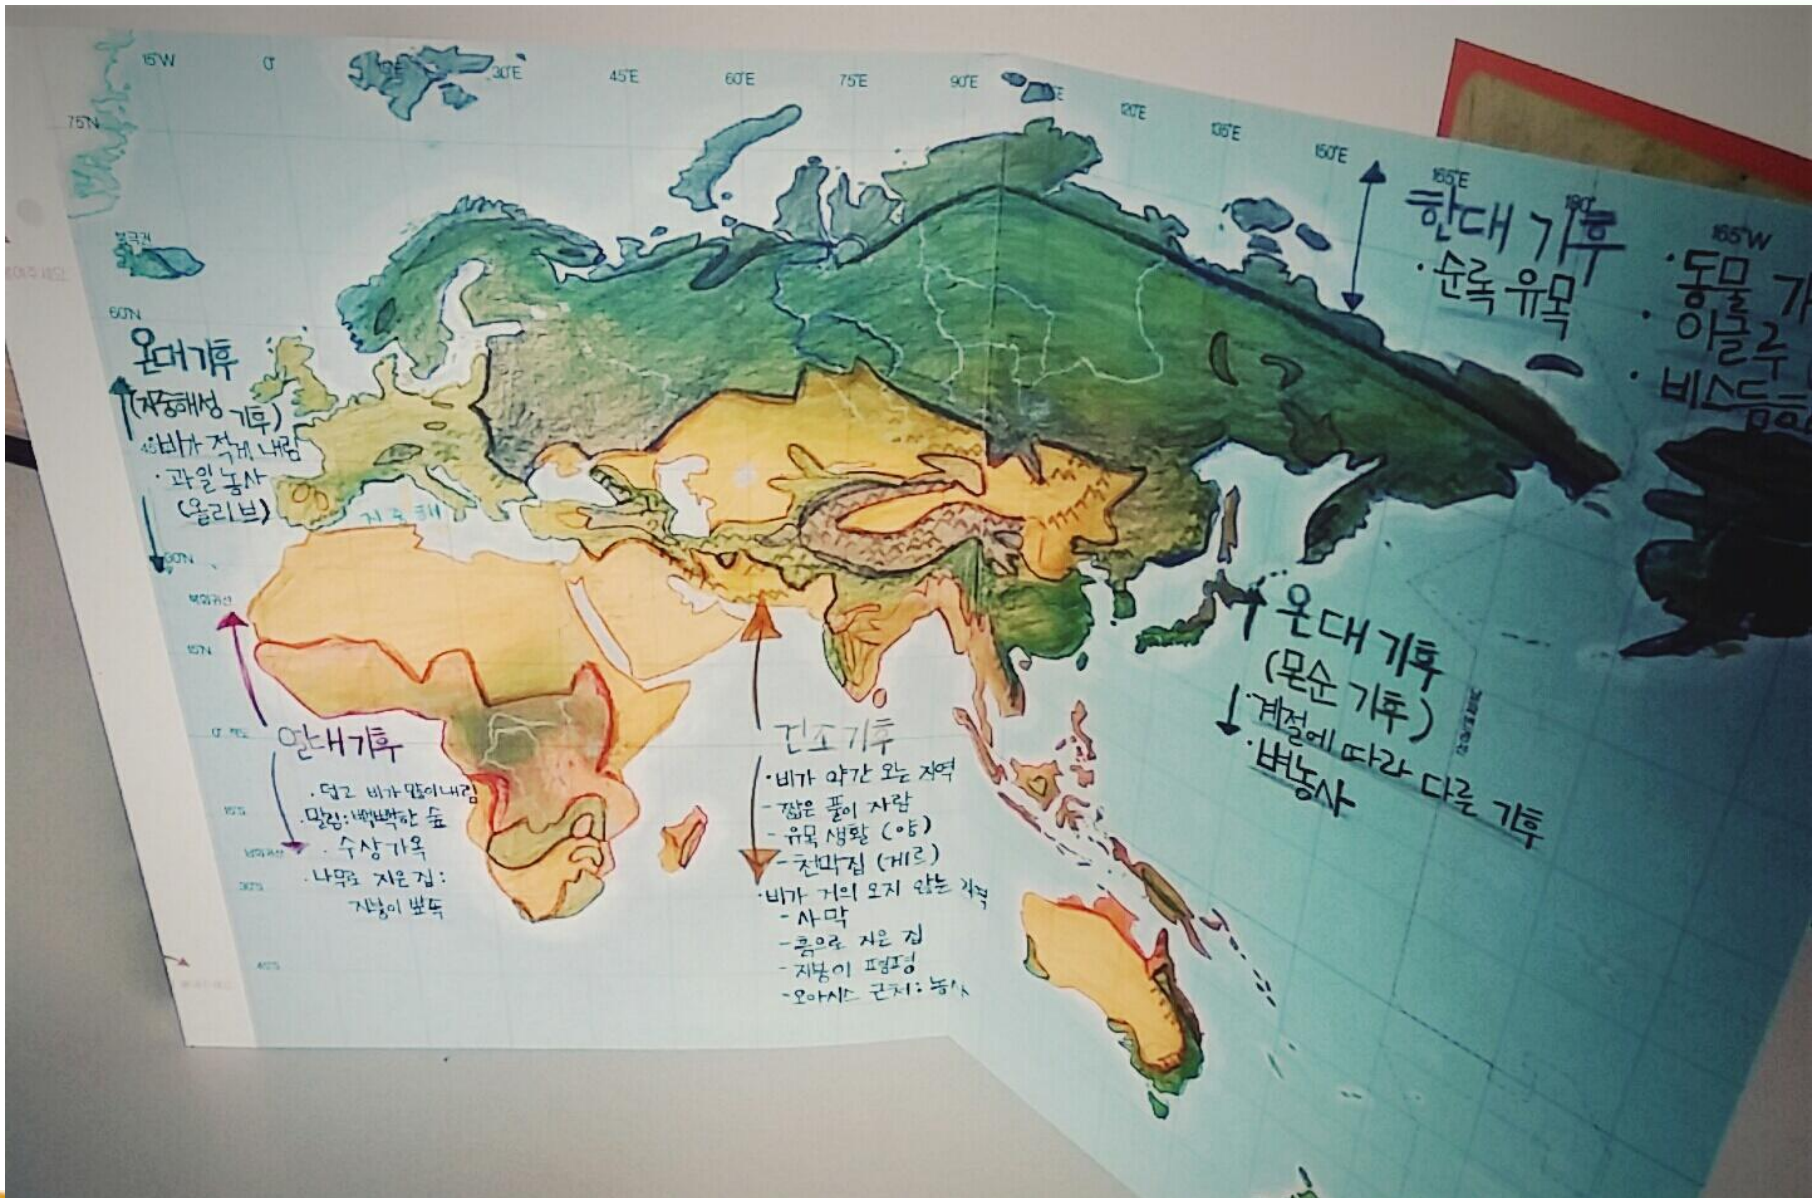 15°W 0° 30°E 45°E 60°E 75°E 90°E 120°E 135°E 150°E 165°E 180° 165°W
75°N
북극권
60°N
온대 기후
(지중해성 기후)
·비가 적게 내림
45°
·과일 농사
(올리브)
지중해
30°N
북회귀선
15°N
0°
15°S
남회귀선
30°S
45°S
열대 기후
·덥고 비가 많이 내림
·밀림:빽빽한 숲
·수상가옥
·나무로 지은 집:
지붕이 뾰족
건조기후
·비가 약간 오는 지역
-짧은 풀이 자람
-유목 생활 (양)
-천막집 (게르)
·비가 거의 오지 않는 지역
-사막
-흙으로 지은 집
-지붕이 평평
-오아시스 근처: 농사
한대 기후
·순록 유목
·동물 가
·이글루
·비스듬
온대 기후
(몬순 기후)
·계절에 따라 다른 기후
·벼농사